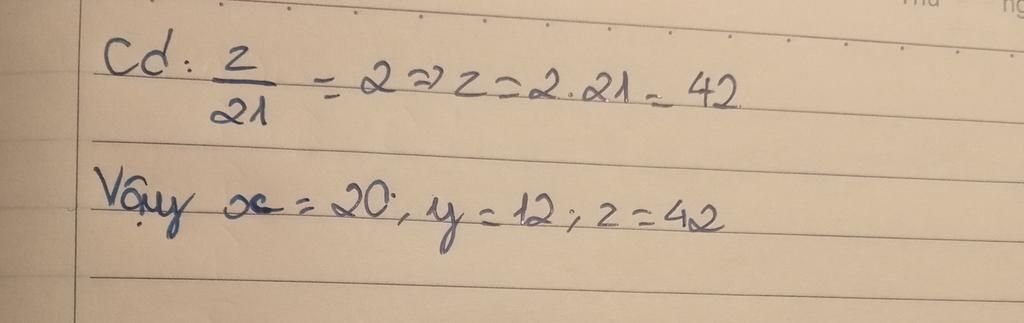 Cd: z/21 = 2 => z = 2.21 = 42
Vậy x = 20; y = 12; z = 42